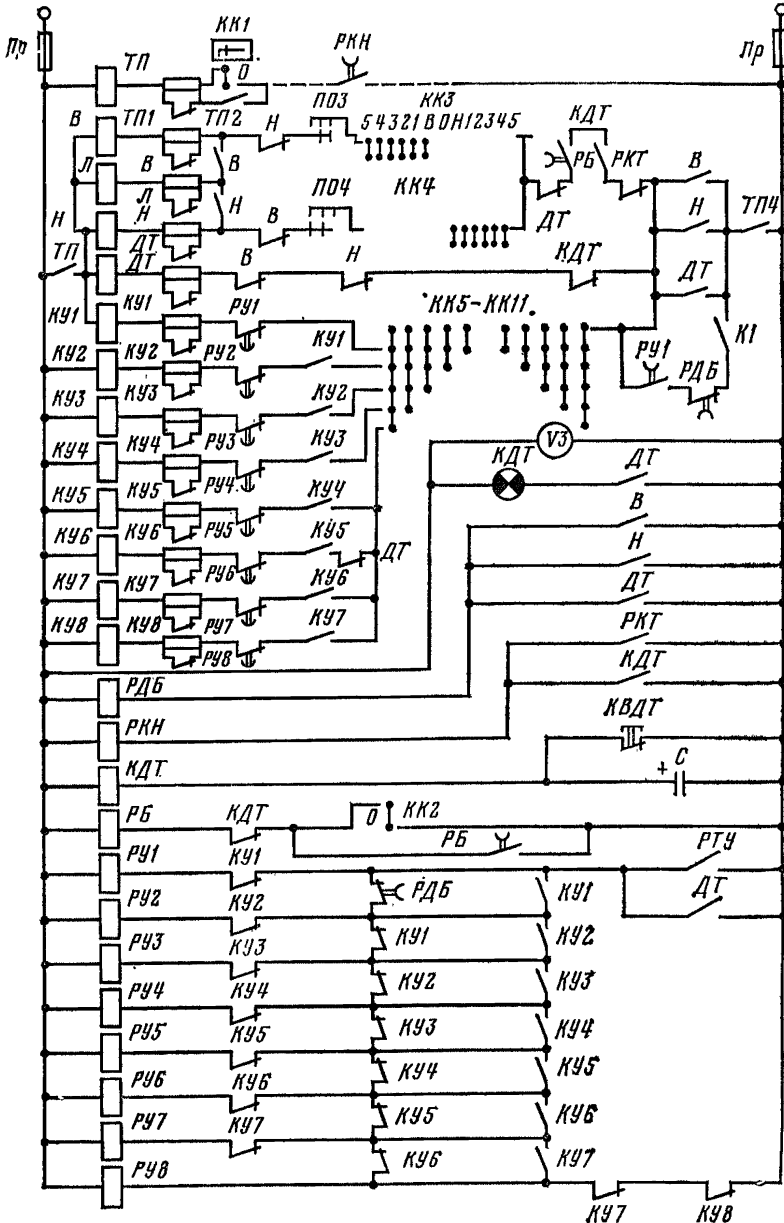 КК1
Пр
ТП
О
РКН
Пр
В
ТП1
ТП2
Н
ПО3
КК3
КДТ
5 4 3 2 1 В О Н 1 2 3 4 5
Л
В
В
РБ
РКТ
В
Л
ПО4
КК4
Н
Н
Н
В
ДТ
Н
ТП4
ТП
ДТ
ДТ
В
Н
КДТ
ДТ
КУ1
КУ1
РУ1
КУ1
КК5-КК11
К1
КУ2
КУ2
РУ2
РУ1
РДБ
КУ3
КУ3
КУ2
РУ3
КУ4
КУ4
КУ3
V3
РУ4
КДТ
ДТ
КУ5
КУ5
КУ4
РУ5
В
КУ6
КУ6
КУ5
ДТ
Н
РУ6
КУ7
КУ7
КУ6
ДТ
КУ8
КУ8
РУ7
КУ7
РКТ
РУ8
КДТ
РДБ
РКН
КВДТ
КДТ
+ С
РБ
КДТ
О
КК2
РБ
РУ1
КУ1
РТУ
РДБ
КУ1
ДТ
РУ2
КУ2
КУ1
КУ2
РУ3
КУ3
КУ2
КУ3
РУ4
КУ4
КУ3
КУ4
РУ5
КУ5
КУ4
КУ5
РУ6
КУ6
КУ5
КУ6
РУ7
КУ7
КУ6
КУ7
РУ8
КУ7
КУ8